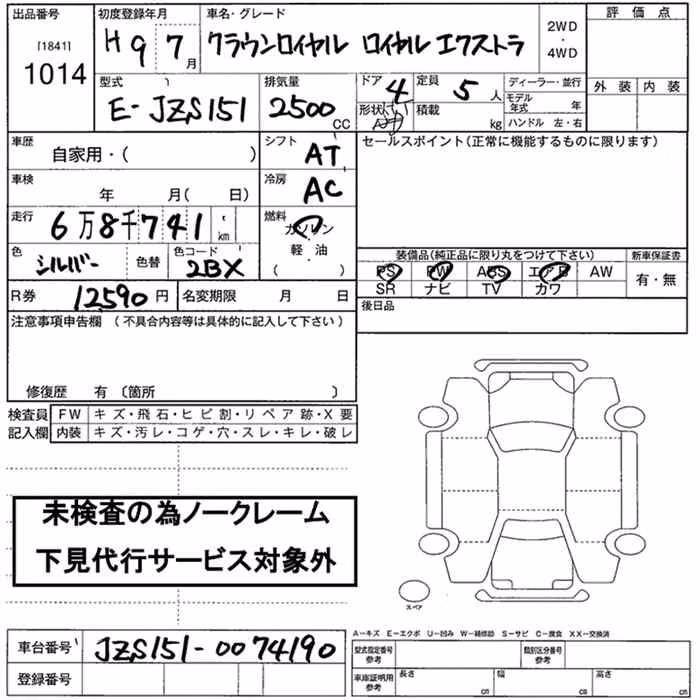 出品番号 初度登録年月 車名・グレード 評価点
[1841] 1014 H9 7月 クラウンロイヤル ロイヤルエクストラ 2WD・4WD
外装 内装
型式 排気量 ドア 4 定員 5人 ディーラー・並行
E-JZS151 2500CC 形状 積載 kg モデル年式 年 ハンドル 左・右
車歴 自家用・( ) シフト AT セールスポイント(正常に機能するものに限ります)
車検 年 月( 日) 冷房 AC
走行 6万8千741 t km 燃料 ガソリン 軽・油 ( )
色 シルバー 色替 色コード 2BX
装備品(純正品に限り丸をつけて下さい) 新車保証書
PS PW ABS エアB AW 有・無
SR ナビ TV カワ
R券 12590円 名変期限 月 日 後日品
注意事項申告欄 (不具合内容等は具体的に記入して下さい)
修復歴 有 〔箇所 〕
検査員 FW キズ・飛石・ヒビ割・リペア跡・X要
記入欄 内装 キズ・汚レ・コゲ・穴・スレ・キレ・破レ
未検査の為ノークレーム
下見代行サービス対象外
スペア
A-キズ E-エクボ U-凹み W-補修跡 S-サビ C-腐食 XX-交換済
車台番号 JZS151-0074190 型式指定番号 参考 類別区分番号 参考
登録番号 車庫証明用 参考 長さ cm 幅 cm 高さ cm